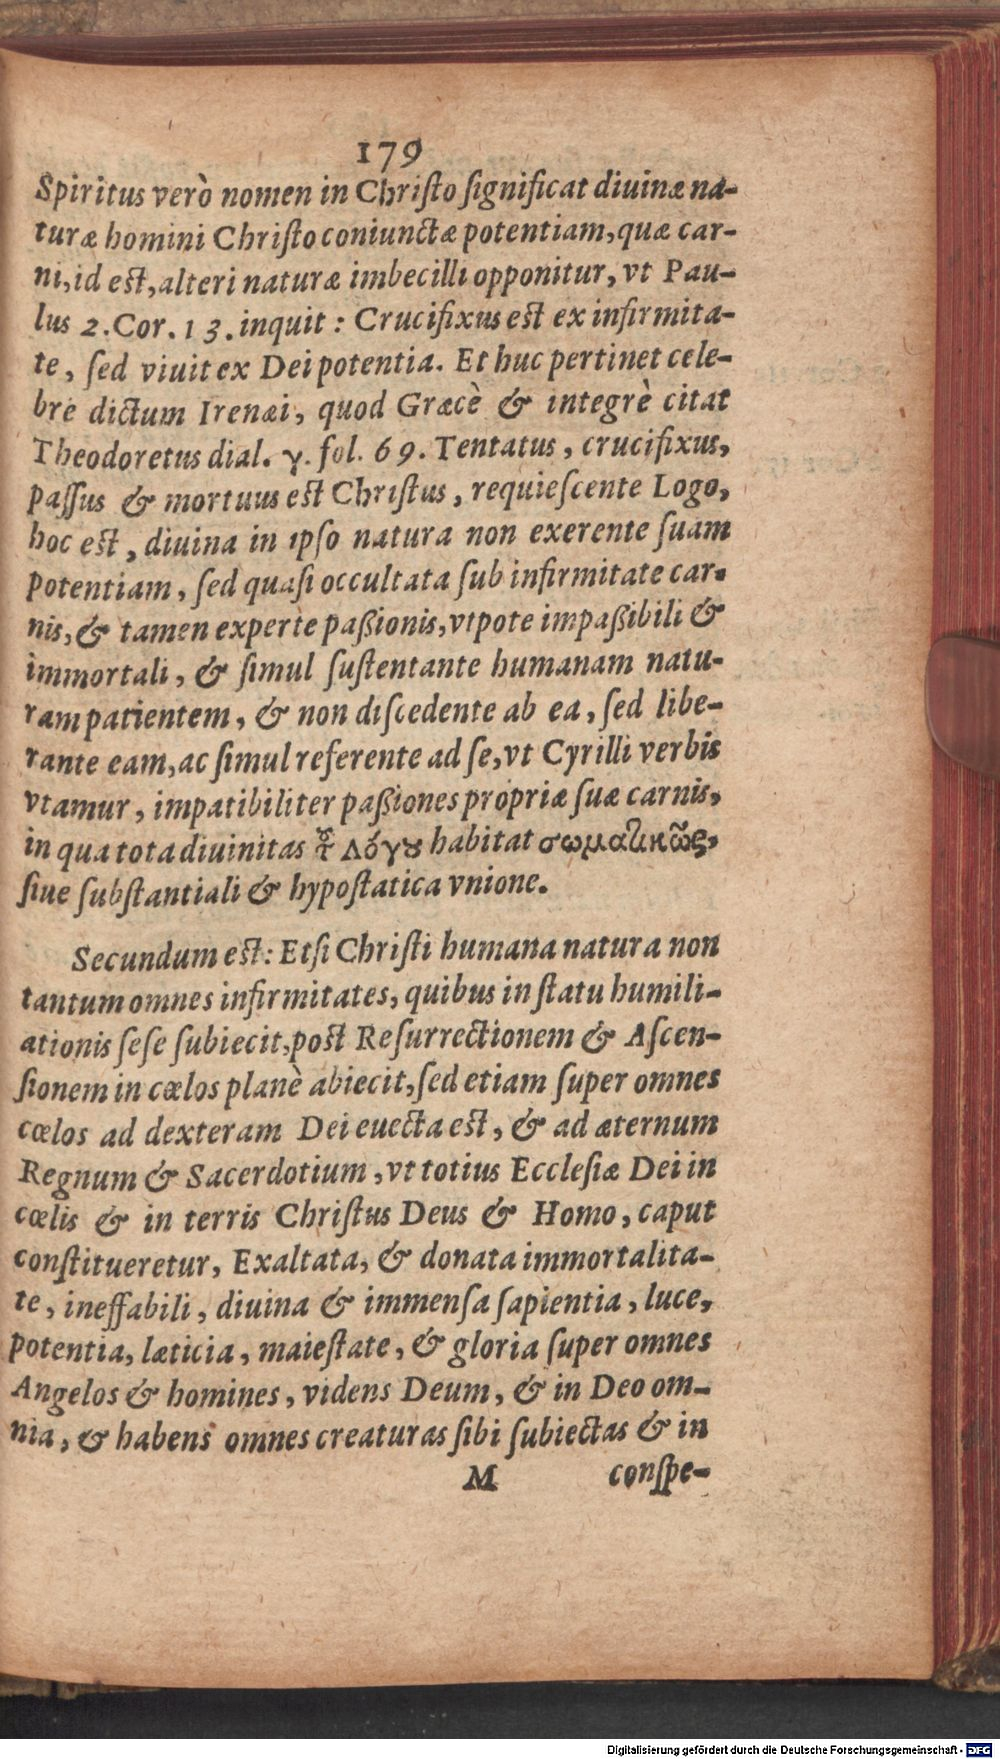 179
Spiritus verò nomen in Chriſto ſignificat diuinæ na-
turæ homini Chriſto coniunctæ potentiam, quæ car-
ni, id est, alteri naturæ imbecilli opponitur, vt Pau-
lus 2. Cor. 13. inquit: Crucifixus est ex infirmita-
te, ſed viuit ex Dei potentia. Et huc pertinet cele-
bre dictum Irenæi, quod Græcè & integrè citat
Theodoretus dial. γ. fol. 69. Tentatus, crucifixus,
paſſus & mortuus est Chriſtus, requieſcente Logo,
hoc est, diuina in ipſo natura non exerente ſuam
potentiam, ſed quaſi occultata ſub infirmitate car-
nis, & tamen experte paßionis, vtpote impaßibili &
immortali, & ſimul ſuſtentante humanam natu-
ram patientem, & non diſcedente ab ea, ſed libe-
rante eam, ac ſimul referente ad ſe, vt Cyrilli verbis
vtamur, impatibiliter paßiones propriæ ſuæ carnis,
in qua tota diuinitas τοῦ Λόγου habitat σωματικῶς,
ſiue ſubſtantiali & hypoſtatica vnione.
Secundum est: Etſi Chriſti humana natura non
tantum omnes infirmitates, quibus in ſtatu humili-
ationis ſeſe ſubiecit, post Reſurrectionem & Aſcen-
ſionem in cœlos planè abiecit, ſed etiam ſuper omnes
cœlos ad dexteram Dei euecta est, & ad æternum
Regnum & Sacerdotium, vt totius Eccleſiæ Dei in
cœlis & in terris Chriſtus Deus & Homo, caput
conſtitueretur, Exaltata, & donata immortalita-
te, ineffabili, diuina & immenſa ſapientia, luce,
potentia, læticia, maieſtate, & gloria ſuper omnes
Angelos & homines, videns Deum, & in Deo om-
nia, & habens omnes creaturas ſibi ſubiectas & in
M conſpe-
Digitalisierung gefördert durch die Deutsche Forschungsgemeinschaft - DFG